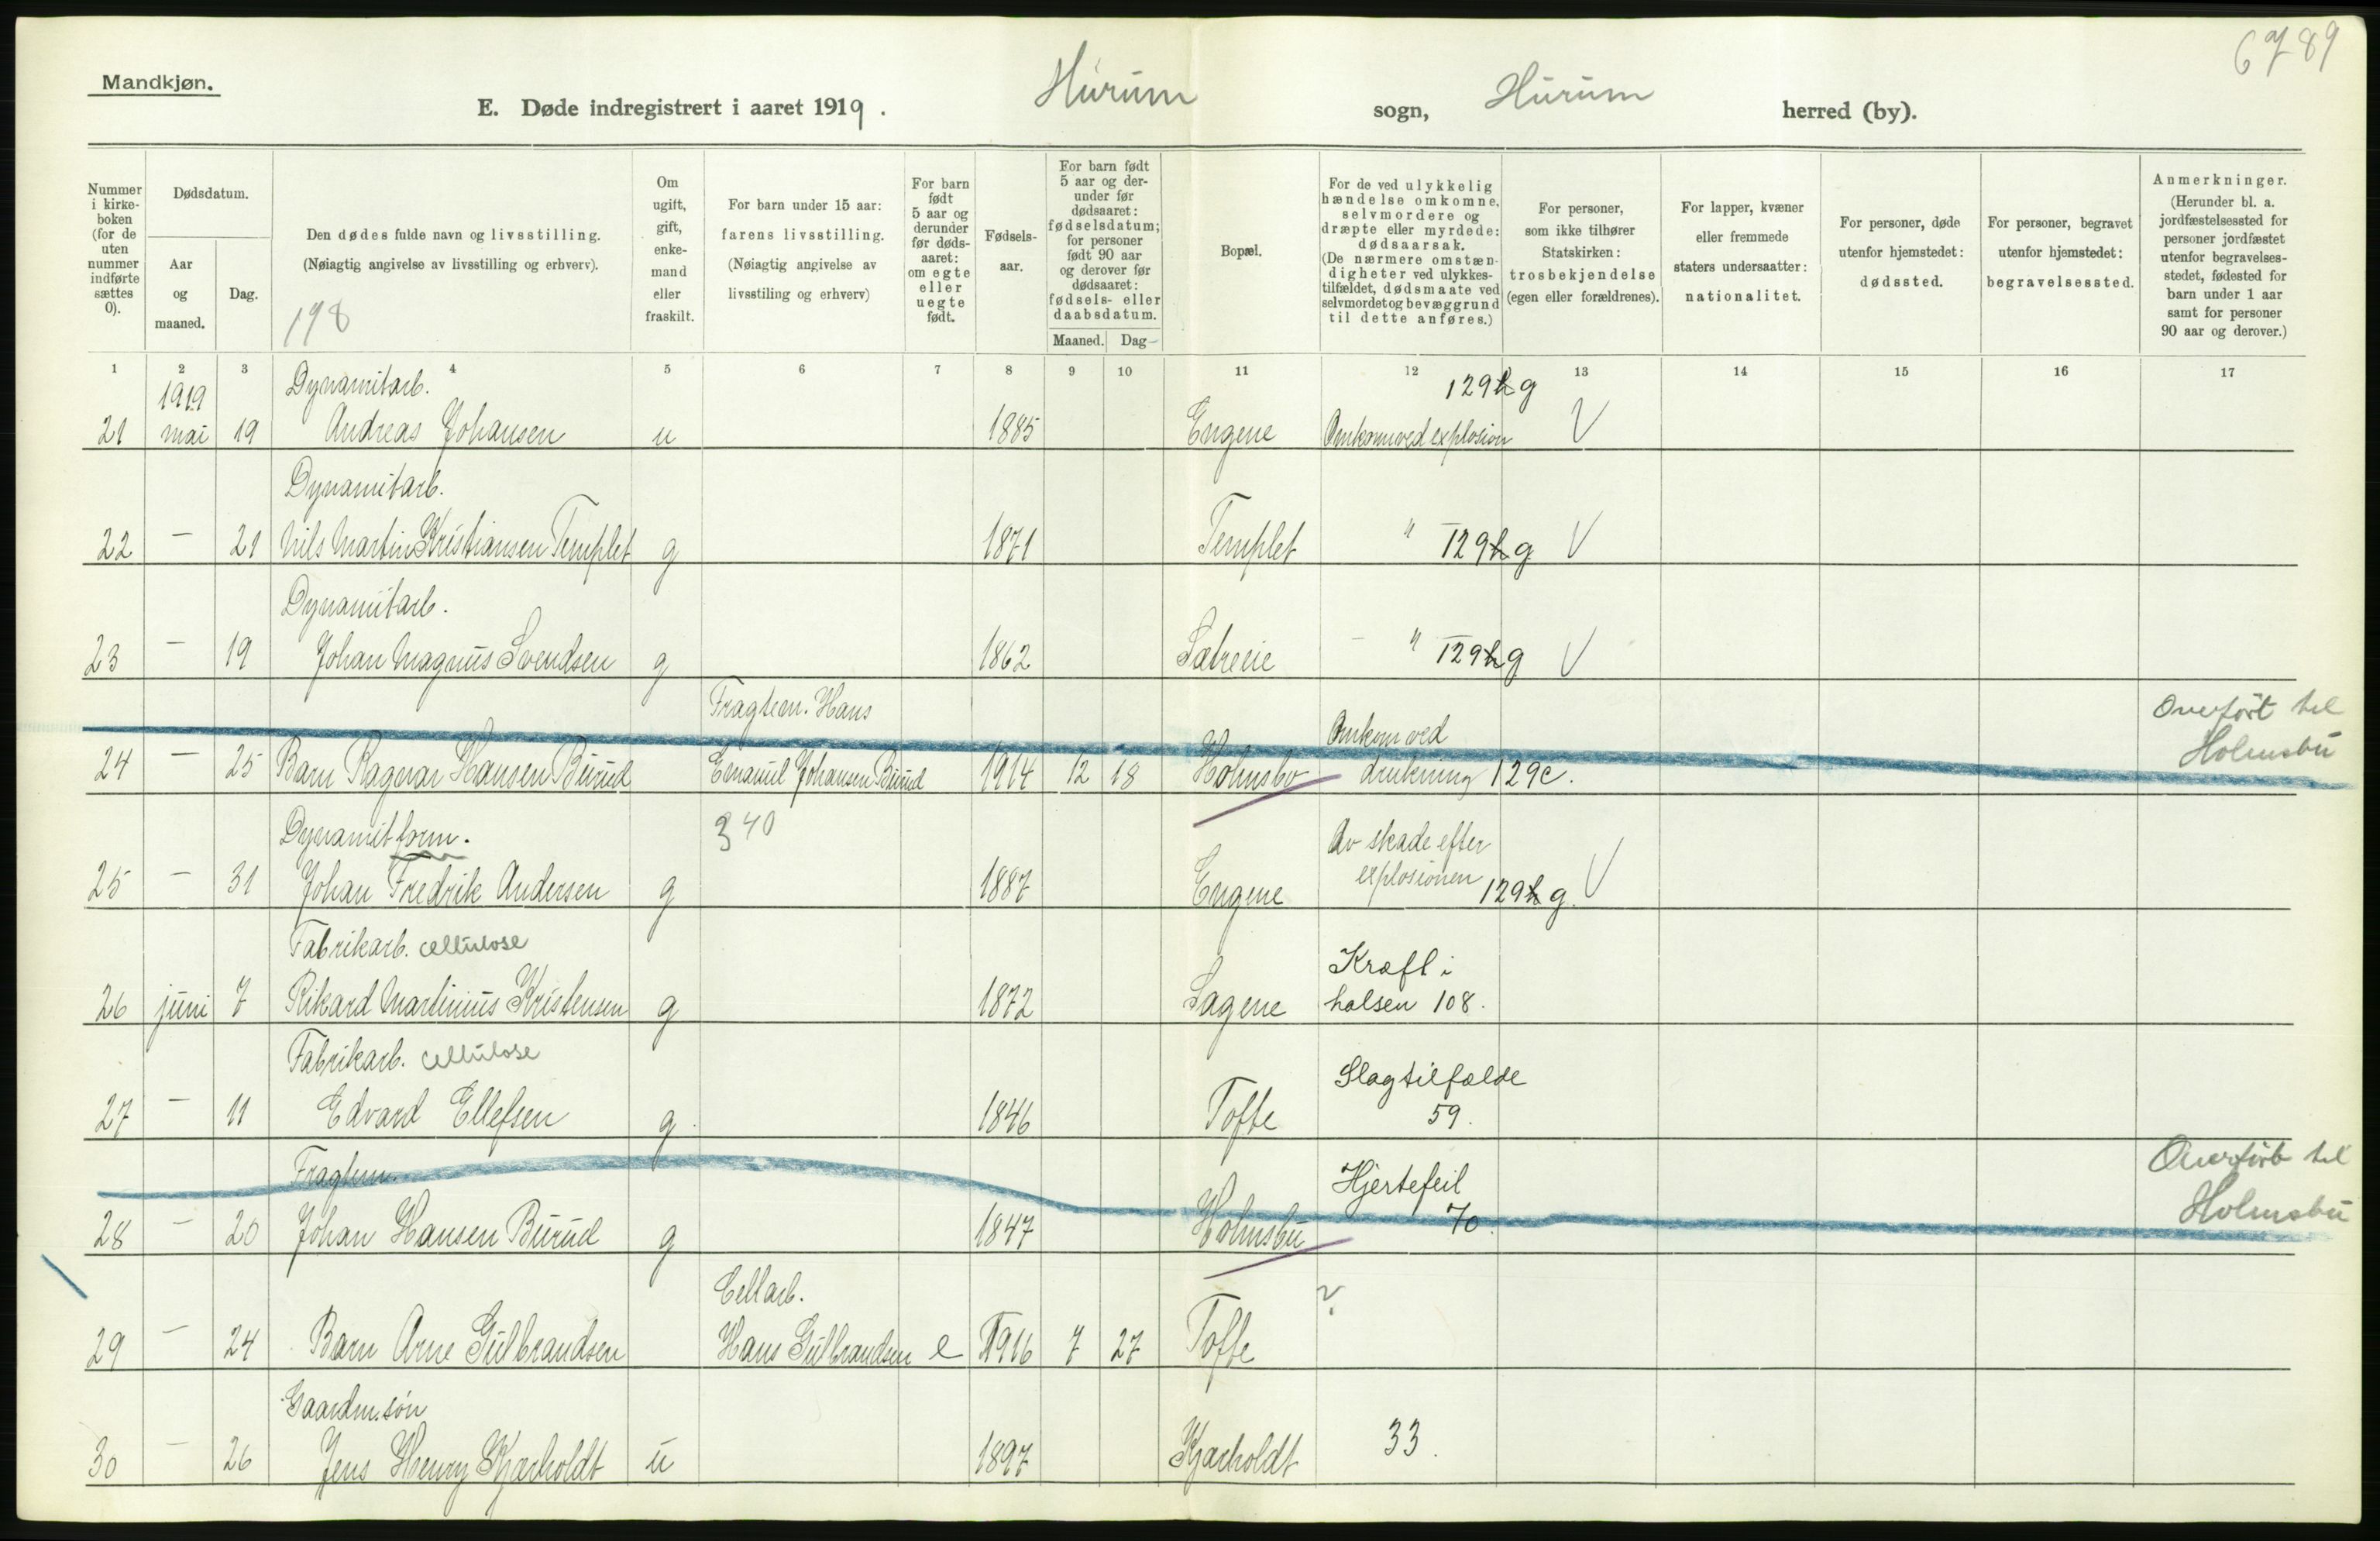 6789
Mandkjøn.
E. Døde indregistrert i aaret 1919. Hurum sogn, Hurum herred (by).
Nummer i kirke-boken (for de uten nummer indførte sættes 0).
Dødsdatum.
Aar og maaned.
Dag.
Den dødes fulde navn og livsstilling.
(Nøiagtig angivelse av livsstilling og erhverv).
198
Om ugift, gift, enke-mand eller fraskilt.
For barn under 15 aar: farens livsstilling.
(Nøiagtig angivelse av livsstiling og erhverv)
For barn født 5 aar og derunder før døds-aaret: om egte eller uegte født.
Fødsels-aar.
For barn født 5 aar og der-under før dødsaaret: fødselsdatum; for personer født 90 aar og derover før dødsaaret: fødsels- eller daabsdatum.
Maaned. Dag
Bopæl.
For de ved ulykkelig hændelse omkomne, selvmordere og dræpte eller myrdede: dødsaarsak.
(De nærmere omstæn-digheter ved ulykkes-tilfældet, dødsmaate ved selvmordet og bevæggrund til dette anføres.)
For personer, som ikke tilhører Statskirken: trosbekjendelse (egen eller forældrenes).
For lapper, kvæner eller fremmede staters undersaatter: nationalitet.
For personer, døde utenfor hjemstedet: dødssted.
For personer, begravet utenfor hjemstedet: begravelsessted.
Anmerkninger.
(Herunder bl. a. jordfæstelsessted for personer jordfæstet utenfor begravelses-stedet, fødested for barn under 1 aar samt for personer 90 aar og derover.)
1 2 3 4 5 6 7 8 9 10 11 12 13 14 15 16 17
1919 Dynamitarb. 129h g
21 mai 19 Andreas Johansen u 1885 Engene Omkom ved explosion V
Dynamitarb.
22 — 21 Nils Martin Kristiansen Templet g 1871 Templet " 129h g V
Dynamitarb.
23 — 19 Johan Magnus Svendsen g 1862 Sætreeie — " 129h g V
Fragtem. Hans Omkom ved Overført til
24 — 25 Barn Ragnar Hansen Burud Emanuel Johansen Burud 1914 12 18 Holmsbo drukning 129c. Holmsbu
Dynamitform. 340 Av skade efter
25 — 31 Johan Fredrik Andersen g 1887 Engene explosionen 129h g. V
Fabrikarb. cellulose Kræft i
26 juni 7 Rikard Martinius Kristensen g 1872 Sagene halsen 108.
Fabrikarb. cellulose Slagtilfælde
27 — 11 Edvard Ellefsen g. 1846 Tofte 59.
Fragtem. Hjertefeil Overført til
28 — 20 Johan Hansen Burud g 1847 Holmsbu 70. Holmsbu
Cellarb. ?
29 — 24 Barn Arne Gulbrandsen Hans Gulbrandsen e 1916 7 27 Tofte
Gaardm. søn
30 — 26 Jens Henry Kjærholdt u 1897 Kjærholdt 33.